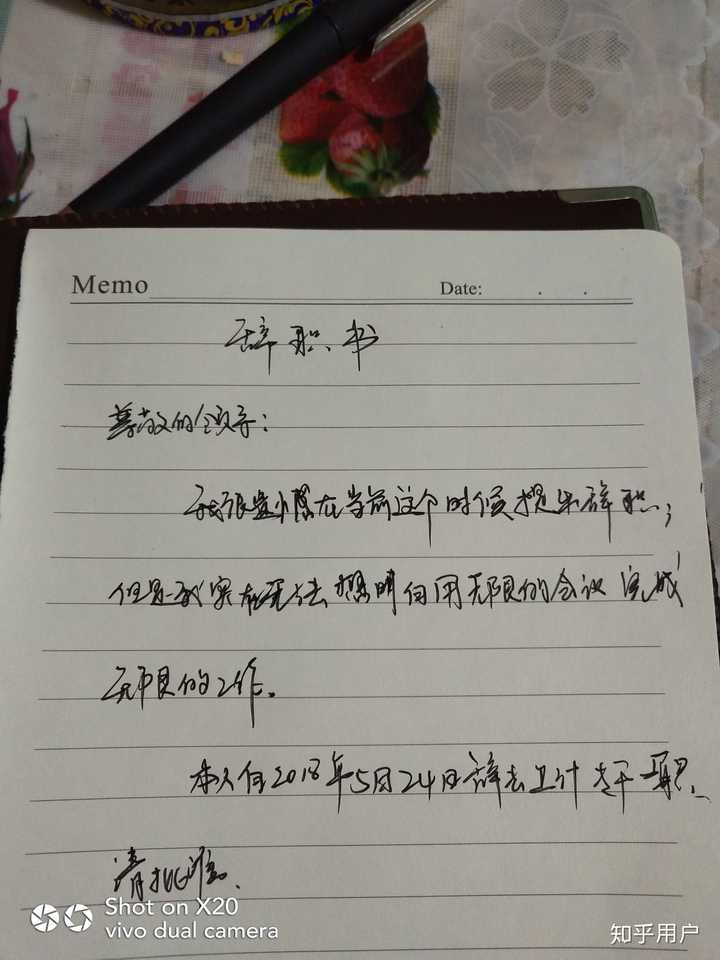 Memo
Date: . .
辞职书
尊敬的领导:
我很遗憾在当前这个时候提出辞职,
但是我实在无法想明白用无限的会议完成
无限的工作。
本人自2018年5月24日辞去卫计专干一职。
请批准。
Shot on X20
vivo dual camera
知乎用户